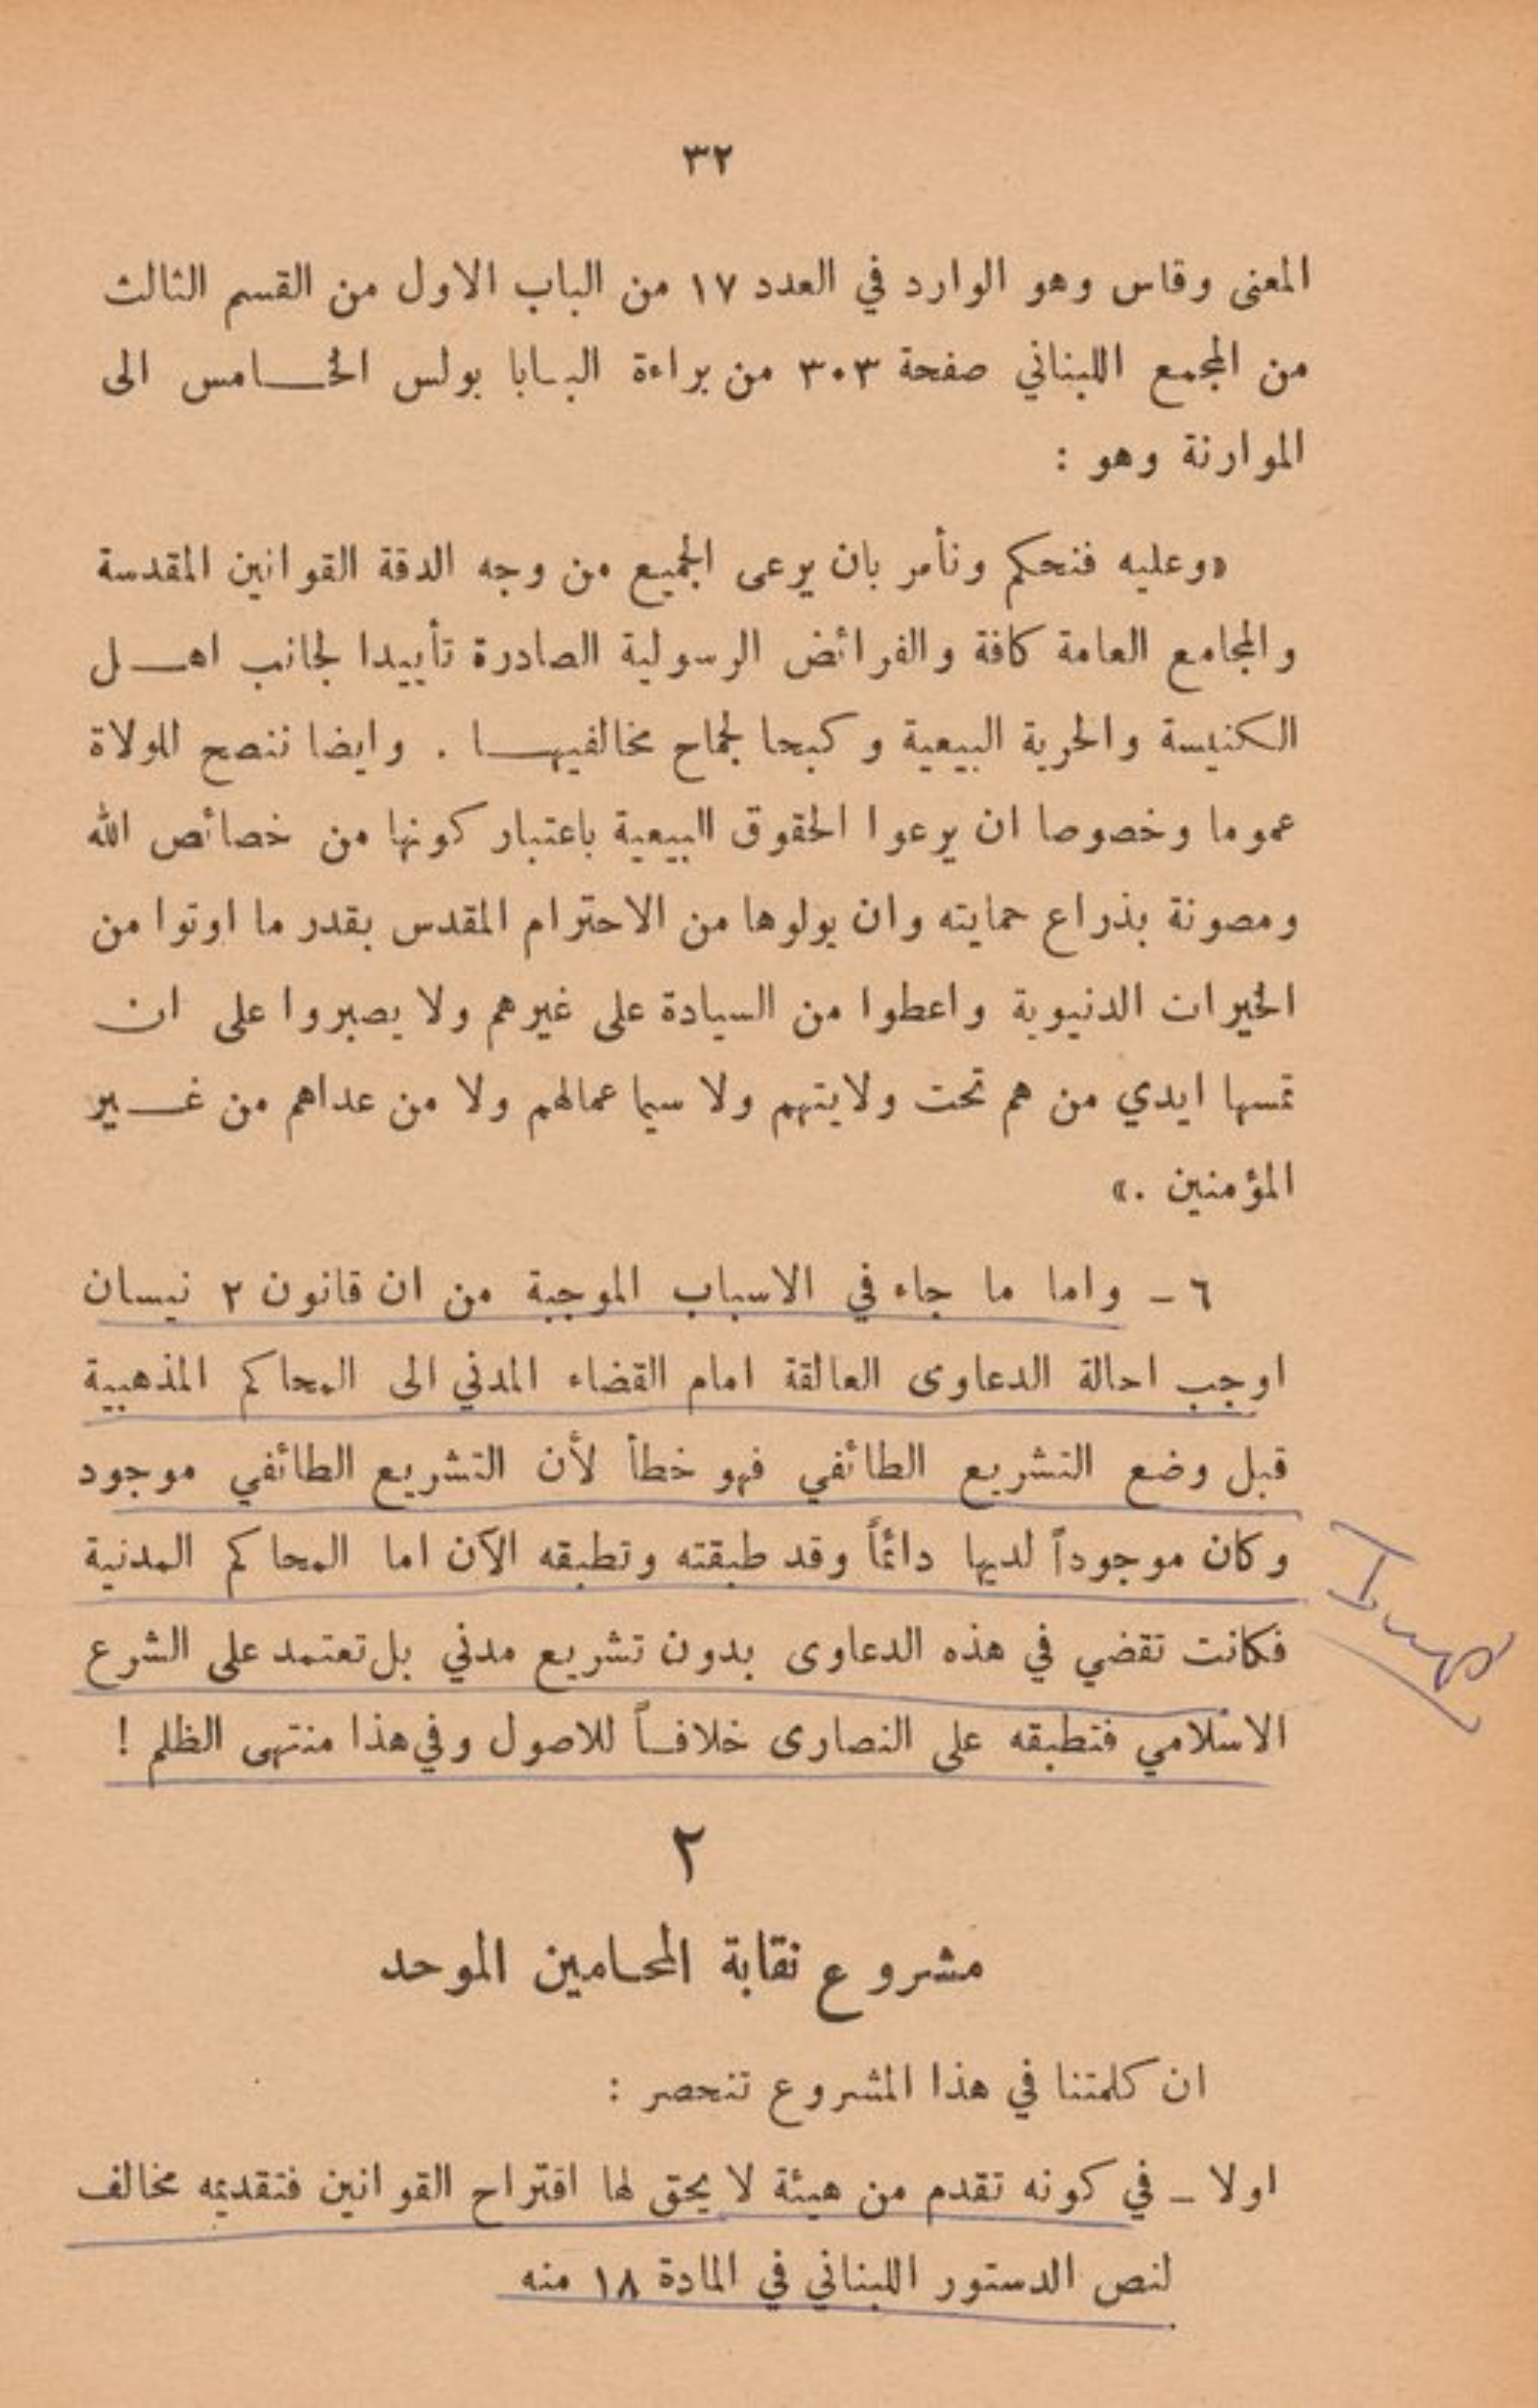 ٣٢
المعنى وقاس وهو الوارد في العدد ١٧ من الباب الاول من القسم الثالث
من المجمع اللبناني صفحة ٣٠٣ من براءة البابا بولس الخامس الى
الموارنة وهو :
«وعليه فنحكم ونأمر بان يرعى الجميع من وجه الدقة القوانين المقدسة
والمجامع العامة كافة والفرائض الرسولية الصادرة تأييدا لجانب اهل
الكنيسة والحرية البيعية وكبحا لجماح مخالفيها . وايضا ننصح للولاة
عموما وخصوصا ان يرعوا الحقوق البيعية باعتبار كونها من خصائص الله
ومصونة بذراع حمايته وان يولوها من الاحترام المقدس بقدر ما اوتوا من
الخيرات الدنيوية واعطوا من السيادة على غيرهم ولا يصبروا على ان
تمسها ايدي من هم تحت ولايتهم ولا سيما عمالهم ولا من عداهم من غير
المؤمنين .»
٦ ـ واما ما جاء في الاسباب الموجبة من ان قانون ٢ نيسان
اوجب احالة الدعاوى العالقة امام القضاء المدني الى المحاكم المذهبية
قبل وضع التشريع الطائفي فهو خطأ لأن التشريع الطائفي موجود
وكان موجوداً لديها دائماً وقد طبقته وتطبقه الآن اما المحاكم المدنية
فكانت تقضي في هذه الدعاوى بدون تشريع مدني بل تعتمد على الشرع
الاسلامي فتطبقه على النصارى خلافاً للاصول وفي هذا منتهى الظلم !
٢
مشروع نقابة المحامين الموحد
ان كلمتنا في هذا المشروع تنحصر :
اولا ـ في كونه تقدم من هيئة لا يحق لها اقتراح القوانين فتقديمه مخالف
لنص الدستور اللبناني في المادة ١٨ منه